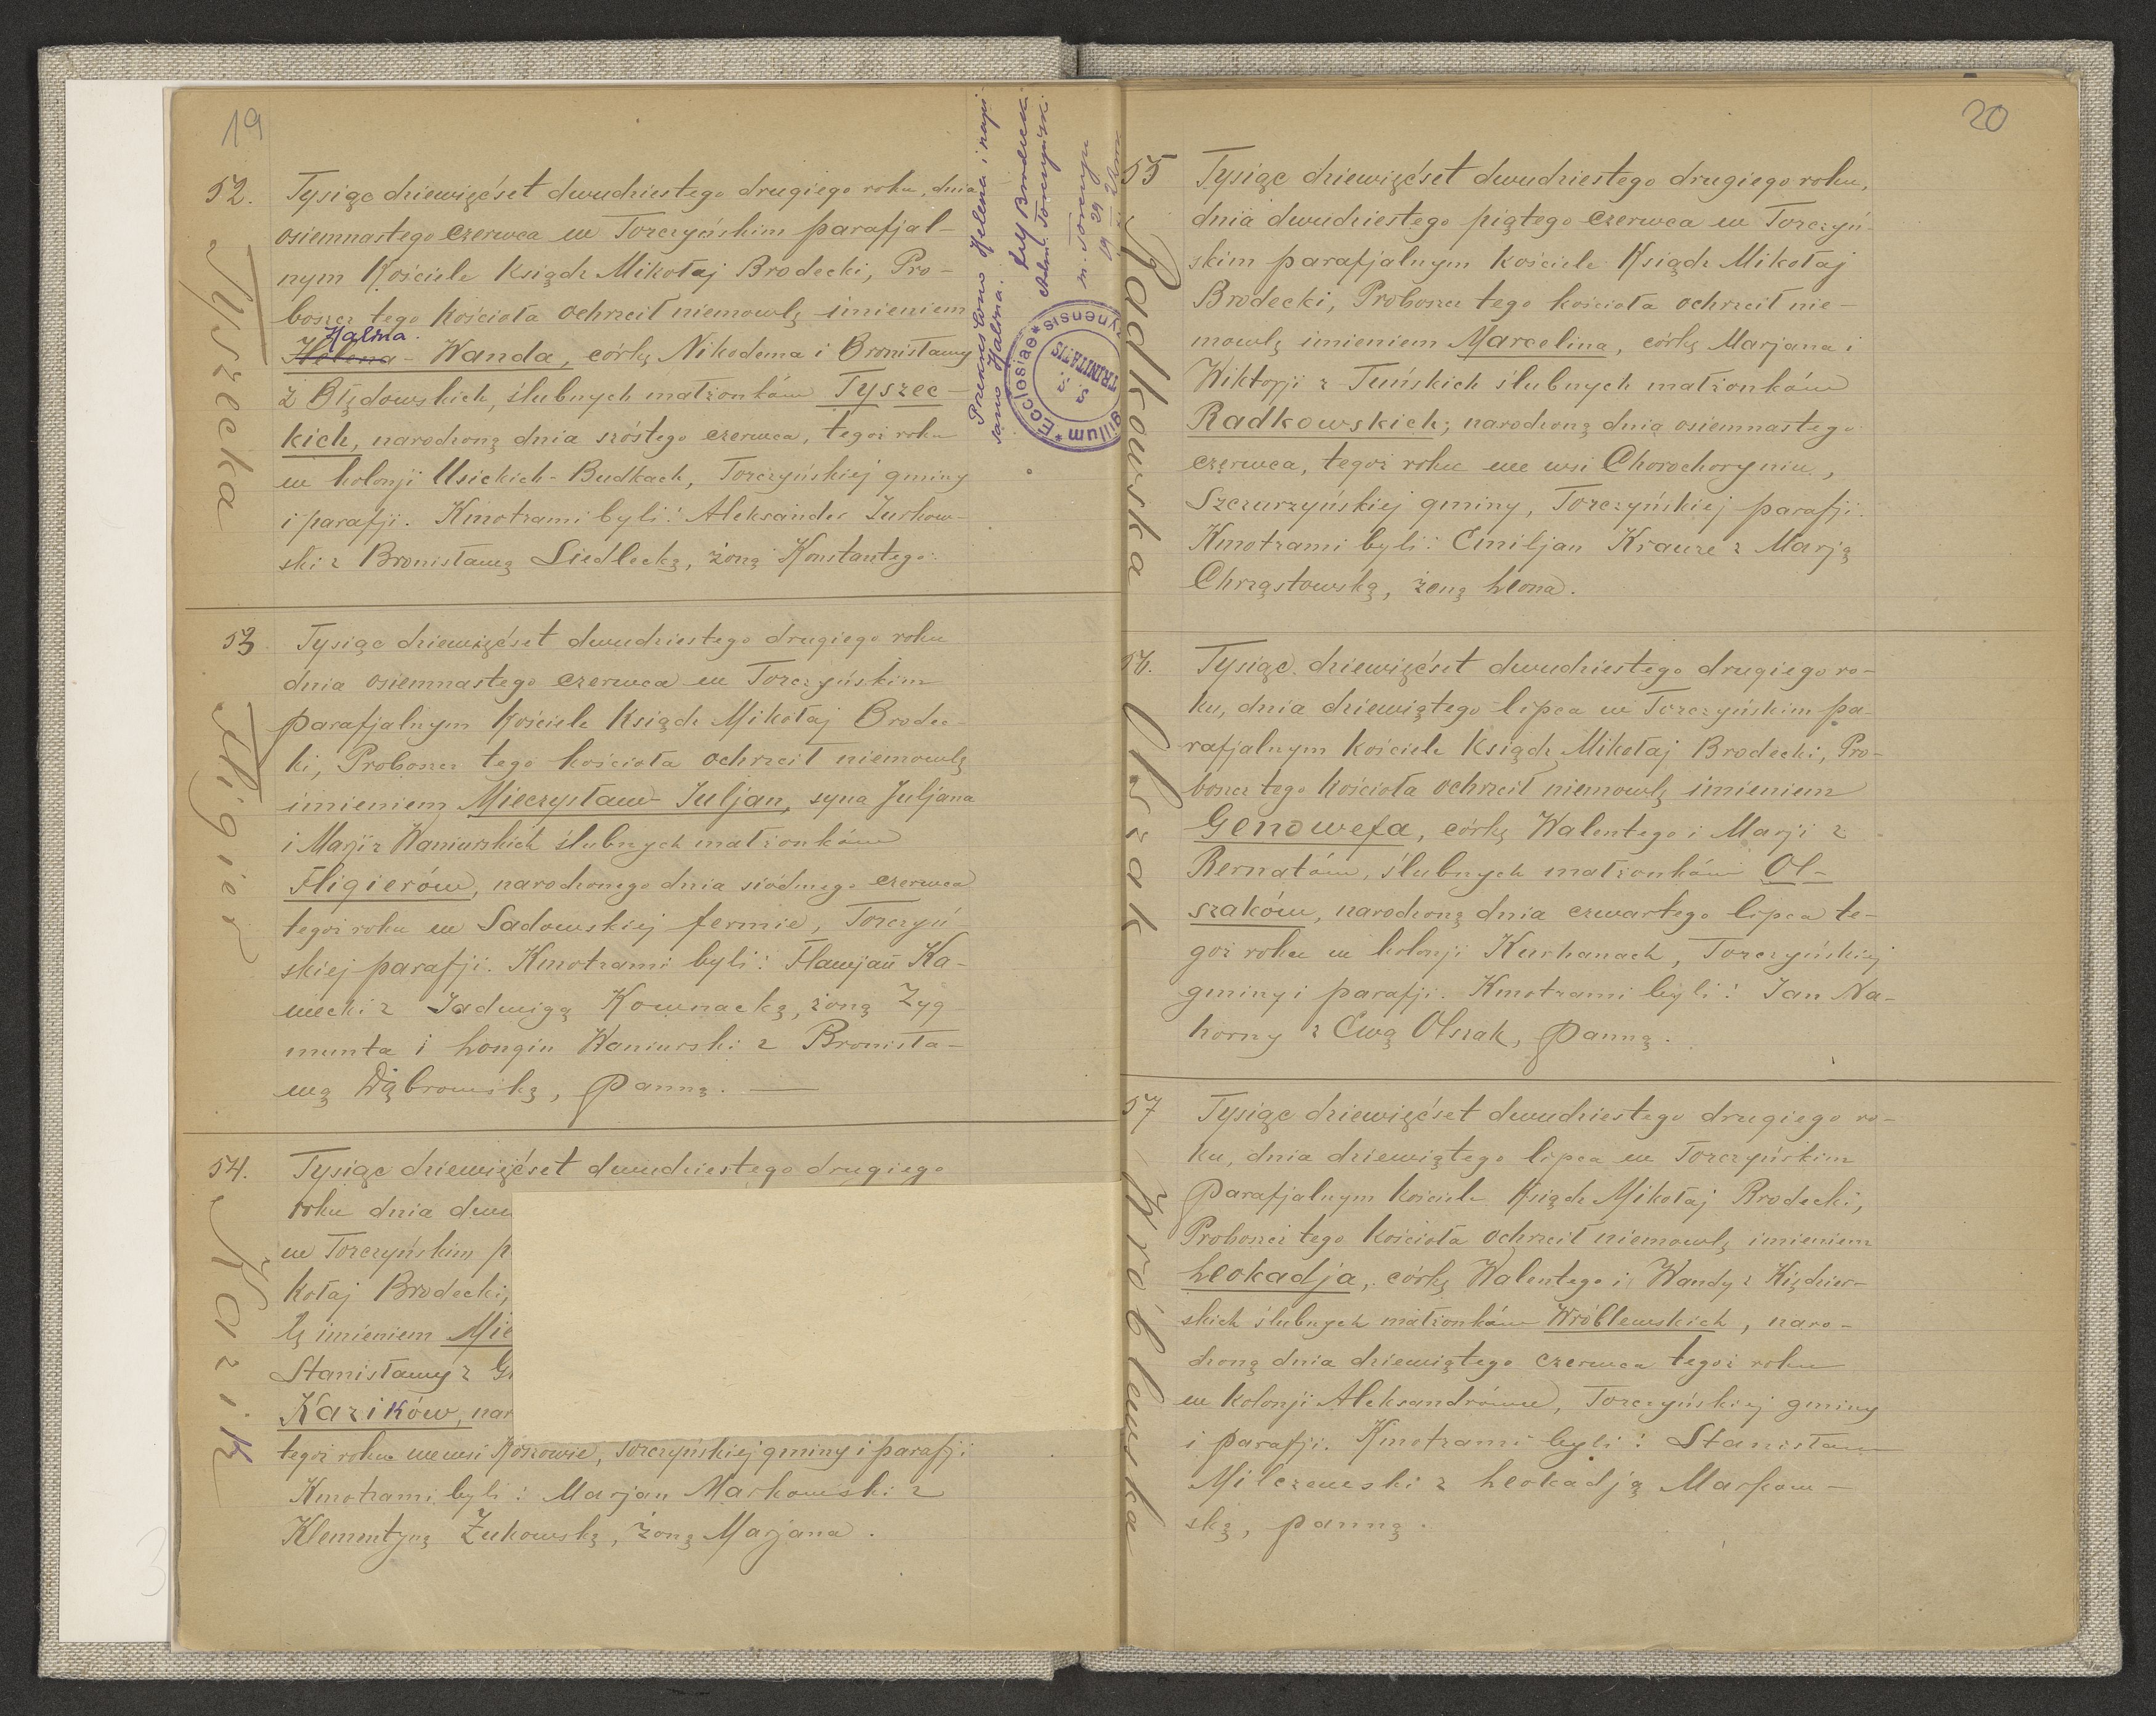 19
52.
Tyszecka
Tysiąc dziewięćset dwudziestego drugiego roku, dnia
osiemnastego czerwca w Torczyńskim parafjal-
nym Kościele Ksiądz Mikołaj Brodecki, Pro-
boszcz tego kościoła ochrzcił niemowlę imieniem
Halina.
Helena - Wanda, córkę Nikodema i Bronisławy
z Błędowskich, ślubnych małżonków Tyszec-
kich, narodzoną dnia szóstego czerwca, tegoż roku
w kolonji Usickich-Budkach, Torczyńskiej gminy
i parafji. Kmotrami byli: Aleksander Żurkow-
ski z Bronisławą Siedlecką, żoną Konstantego.
Przekreślono Helena i napi-
sano Halina.
Adm. Torczyński
m. Torczyn
Sigillum * Ecclesiae *
S. S.
TRINITATIS
53
Fligier
Tysiąc dziewięćset dwudziestego drugiego roku
dnia osiemnastego czerwca w Torczyńskim
parafjalnym Kościele Ksiądz Mikołaj Brodec-
ki, Proboszcz tego kościoła ochrzcił niemowlę
imieniem Mieczysław-Juljan, syna Juljana
i Marji z Waniurskich ślubnych małżonków
Fligierów, narodzonego dnia siódmego czerwca
tegoż roku w Sadowskiej fermie, Torczyń
skiej parafji. Kmotrami byli: Flawjan Ka-
wecki z Jadwigą Kownacką, żoną Zyg
munta i Longin Waniurski z Bronisła-
wą Dąbrowską, panną.
54.
Kazik
Tysiąc dziewięćset dwudziestego drugiego
roku dnia dwu
w Torczyńskim p
kołaj Brodecki,
lę imieniem Mie
Stanisławy z G
Kazików, nar
tegoż roku we wsi Koszowie, Torczyńskiej gminy i parafji
Kmotrami byli: Marjan Markowski z
Klementyną Żukowską, żoną Marjana.
20
55
Radkowska
Tysiąc dziewięćset dwudziestego drugiego roku,
dnia dwudziestego piątego czerwca w Torczyń-
skim parafjalnym kościele Ksiądz Mikołaj
Brodecki, Proboszcz tego kościoła ochrzcił nie-
mowlę imieniem Marcelina, córkę Marjana i
Wiktorji z Tuńskich ślubnych małżonków
Radkowskich, narodzoną dnia osiemnastego
czerwca, tegoż roku we wsi Chorochoryniu,
Szczurzyńskiej gminy, Torczyńskiej parafji.
Kmotrami byli: Emiljan Krauze z Marją
Chrząstowską, żoną Leona.
56.
Olszak
Tysiąc dziewięćset dwudziestego drugiego ro-
ku, dnia dziewiątego lipca w Torczyńskim pa-
rafjalnym kościele Ksiądz Mikołaj Brodecki, Pro-
boszcz tego kościoła ochrzcił niemowlę imieniem
Genowefa, córkę Walentego i Marji z
Bernatów, ślubnych małżonków Ol-
szaków, narodzoną dnia czwartego lipca te-
goż roku w kolonji Kurhanach, Torczyńskiej
gminy i parafji. Kmotrami byli: Jan Na-
horny z Ewą Olszak, panną.
57
Wróblewska
Tysiąc dziewięćset dwudziestego drugiego ro-
ku, dnia dziewiątego lipca w Torczyńskim
parafjalnym kościele Ksiądz Mikołaj Brodecki,
Proboszcz tego kościoła ochrzcił niemowlę imieniem
Leokadja, córkę Walentego i Wandy z Kiędzier-
skich ślubnych małżonków Wróblewskich, naro-
dzoną dnia dziewiątego czerwca tegoż roku
w kolonji Aleksandrówce, Torczyńskiej gminy
i parafji. Kmotrami byli: Stanisław
Milczewski z Leokadją Markow-
ską, panną.